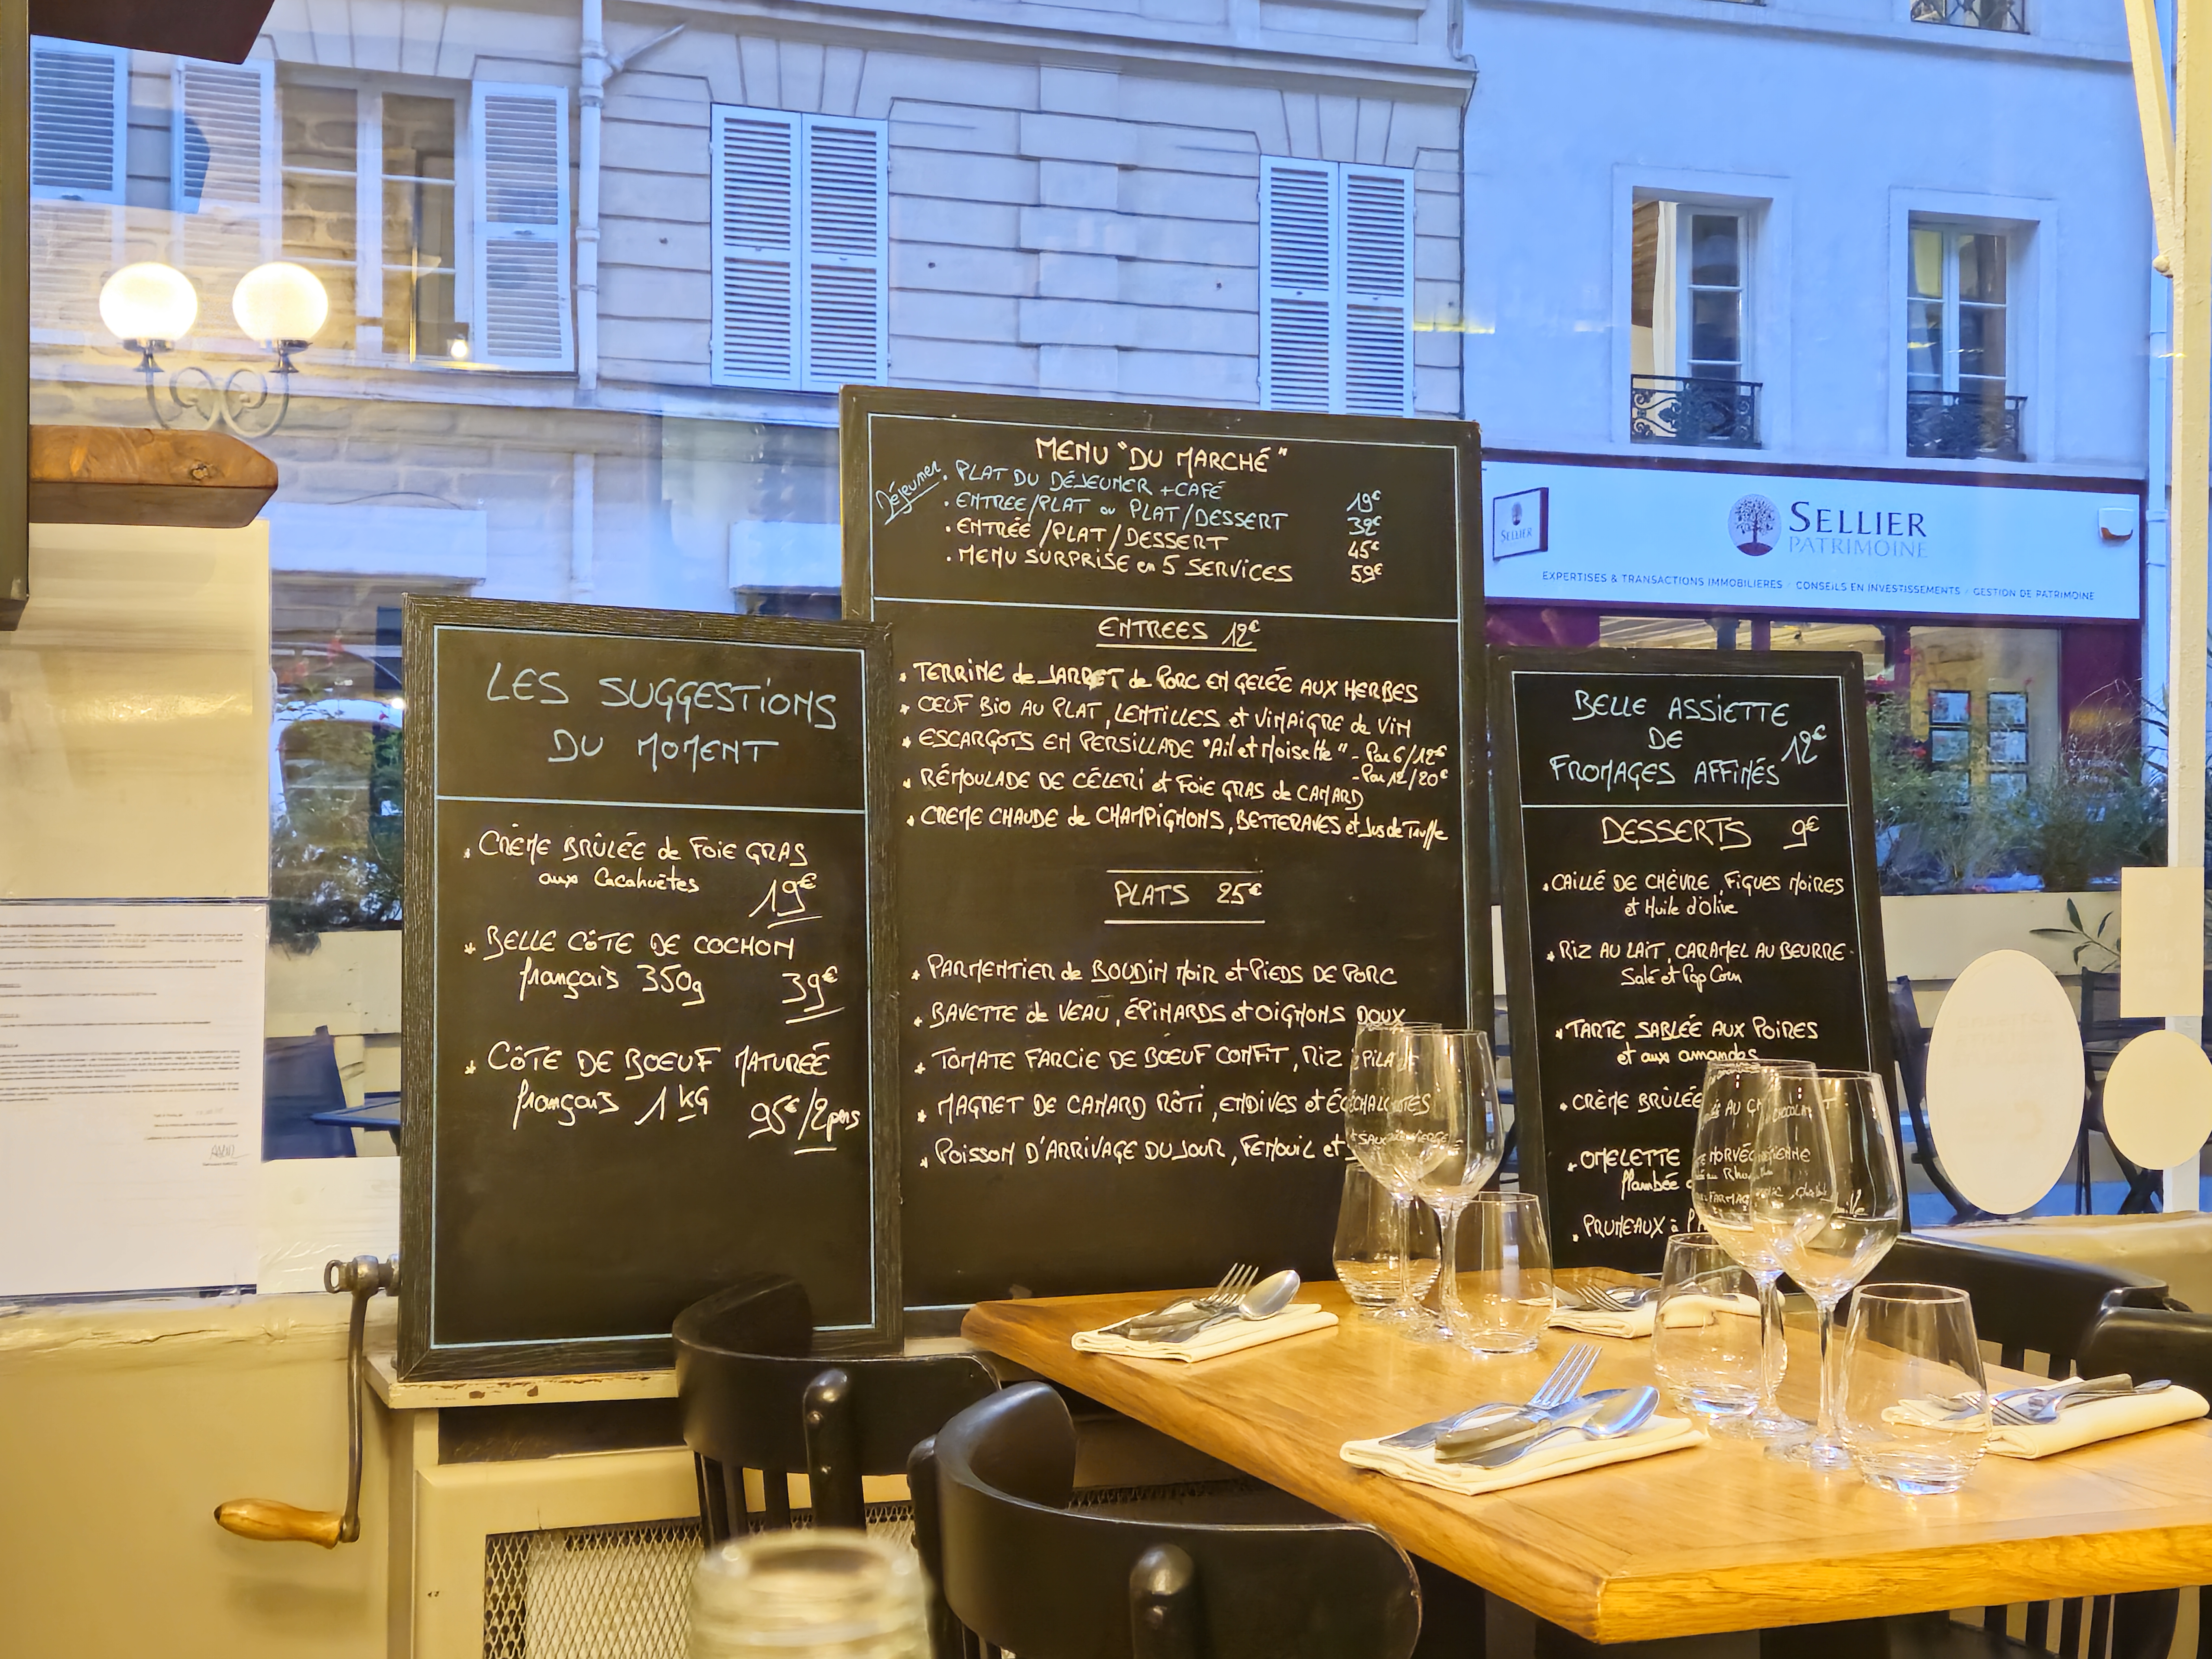 LES SUGGESTIONS
DU MOMENT
CRÈME BRÛLÉE de FOIE GRAS
aux Cacahuètes
19€
BELLE CÔTE DE COCHON
français 350g 39€
CÔTE DE BOEUF MATURÉE
français 1 KG
95€/2pers
MENU "DU MARCHÉ"
Déjeuner
. PLAT DU DÉJEUNER + CAFÉ 19€
. ENTREE/PLAT ou PLAT/DESSERT 32€
. ENTRÉE/PLAT/DESSERT 45€
. MENU SURPRISE en 5 SERVICES 59€
ENTREES 12€
TERRINE de JARRET de PORC EN GELÉE AUX HERBES
OEUF BIO AU PLAT, LENTILLES et VINAIGRE de VIN
ESCARGOTS EN PERSILLADE "Ail et Noisette" - Par 6/12€
- Par 12/20€
RÉMOULADE DE CÉLERI et FOIE GRAS de CANARD
CREME CHAUDE de CHAMPIGNONS, BETTERAVES et Jus de Truffe
PLATS 25€
PARMENTIER de BOUDIN NOIR et PIEDS DE PORC
BAVETTE de VEAU, ÉPINARDS et OIGNONS DOUX
TOMATE FARCIE DE BOEUF CONFIT, RIZ PILAF
MAGRET DE CANARD RÔTI, ENDIVES et ÉCHALOTES
POISSON D'ARRIVAGE DU JOUR, FENOUIL et
BELLE ASSIETTE
DE
FROMAGES AFFINÉS 12€
DESSERTS 9€
CAILLÉ DE CHÈVRE, FIGUES NOIRES
et Huile d'Olive
RIZ AU LAIT, CARAMEL AU BEURRE
Salé et Pop Corn
TARTE SABLÉE AUX POIRES
et aux amandes
CRÈME BRÛLÉE
OMELETTE NORVÉGIENNE
flambée
PRUNEAUX à
SELLIER
SELLIER
PATRIMOINE
EXPERTISES & TRANSACTIONS IMMOBILIERES / CONSEILS EN INVESTISSEMENTS / GESTION DE PATRIMOINE